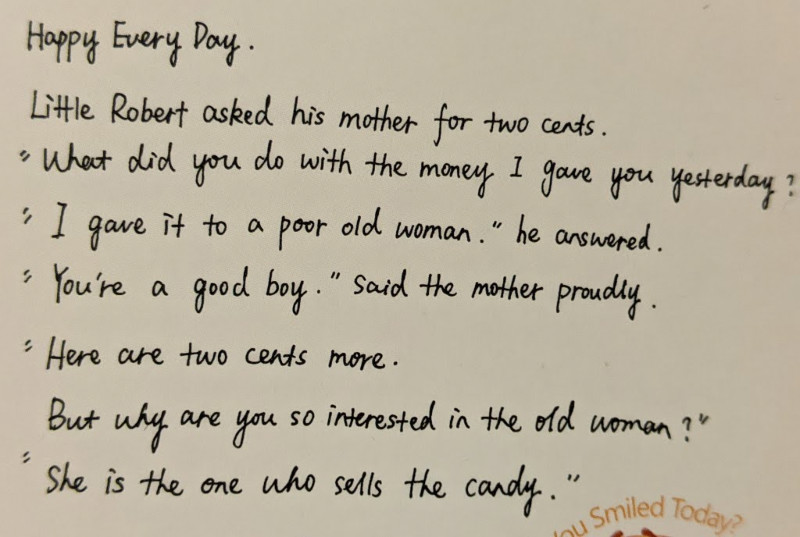 Happy Every Day.
Little Robert asked his mother for two cents.
"What did you do with the money I gave you yesterday?
"I gave it to a poor old woman." he answered.
"You're a good boy." Said the mother proudly.
"Here are two cents more.
But why are you so interested in the old woman?"
"She is the one who sells the candy."
You Smiled Today?